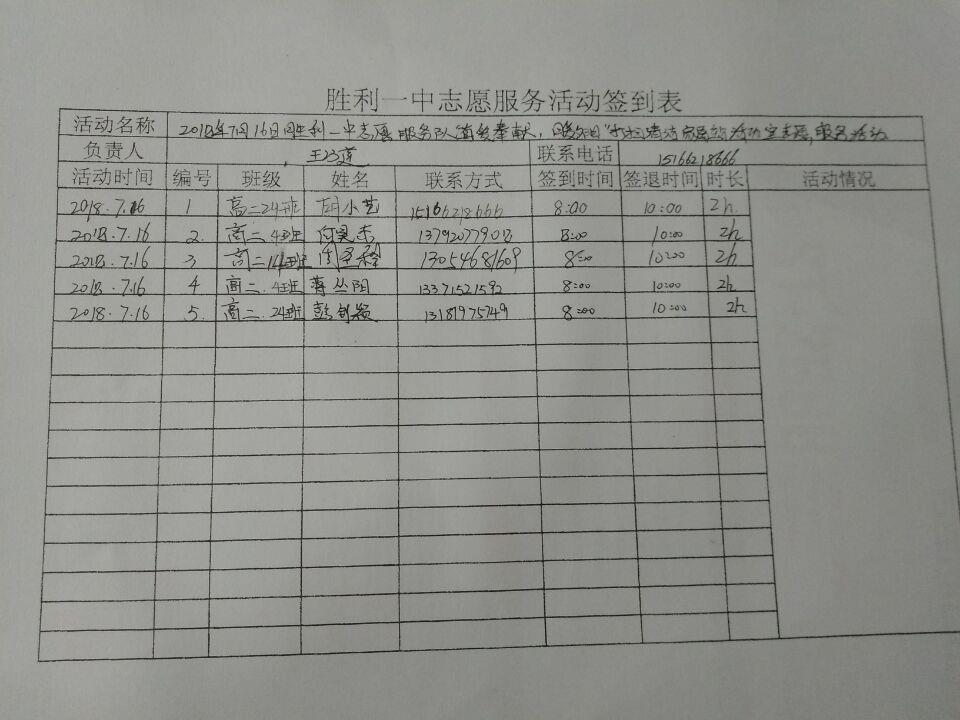 胜利一中志愿服务活动签到表
活动名称 2018年7月16日胜利一中志愿服务队 奉献, 活动室志愿服务活动
负责人 王 莲 联系电话 15166218666
活动时间 编号 班级 姓名 联系方式 签到时间 签退时间 时长 活动情况
2018.7.16 1 高二24班 胡小艺 15166218666 8:00 10:00 2h.
2018.7.16 2. 高二.4班 13792077908 8:00 10:00 2h
2018.7.16 3 高二14班 13054681609 8:00 10:00 2h
2018.7.16 4 高二.4班 蒋丛阳 13371521592 8:00 10:00 2h
2018.7.16 5. 高二.24班 彭 颖 13181975749 8:00 10:00 2h